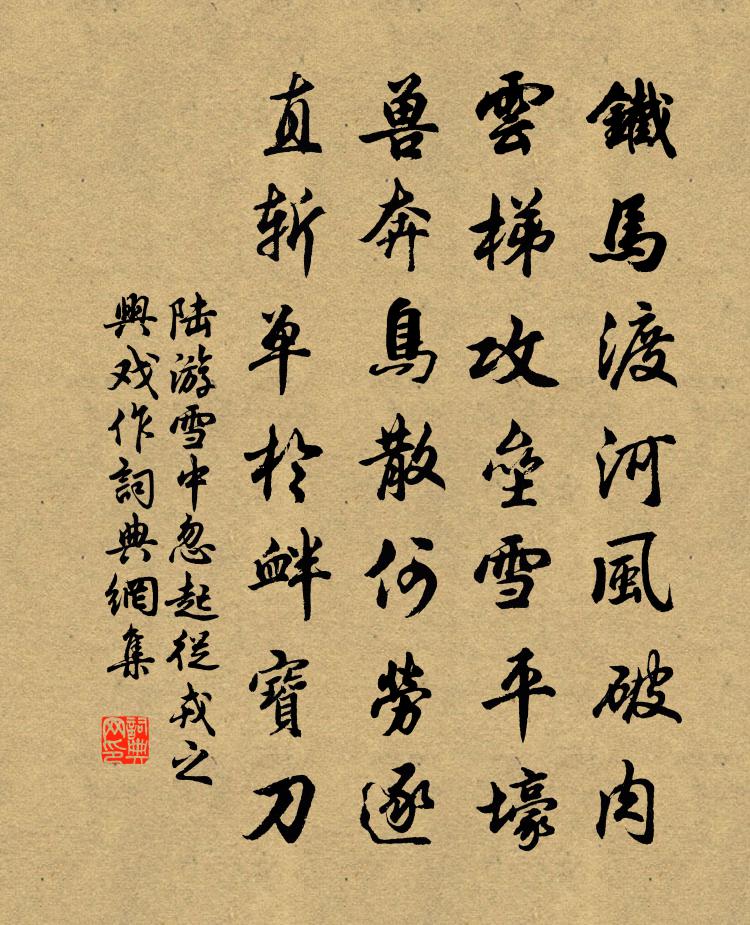 鐵馬渡河風破肉
雲梯攻壘雪平壕
兽奔鳥散何勞逐
直斬单於衅寶刀
陆游雪中忽起從戎之
興戏作詞典網集
詞典
网印